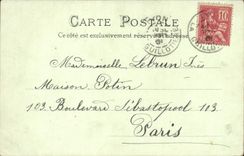 CARTE POSTALE
Ce côté est exclusivement réservé à l'adresse
LA GUILLOTIÈRE
10
Mademoiselle Lebrun
Maison Potin
103. Boulevard Sébastopol 113.
Paris